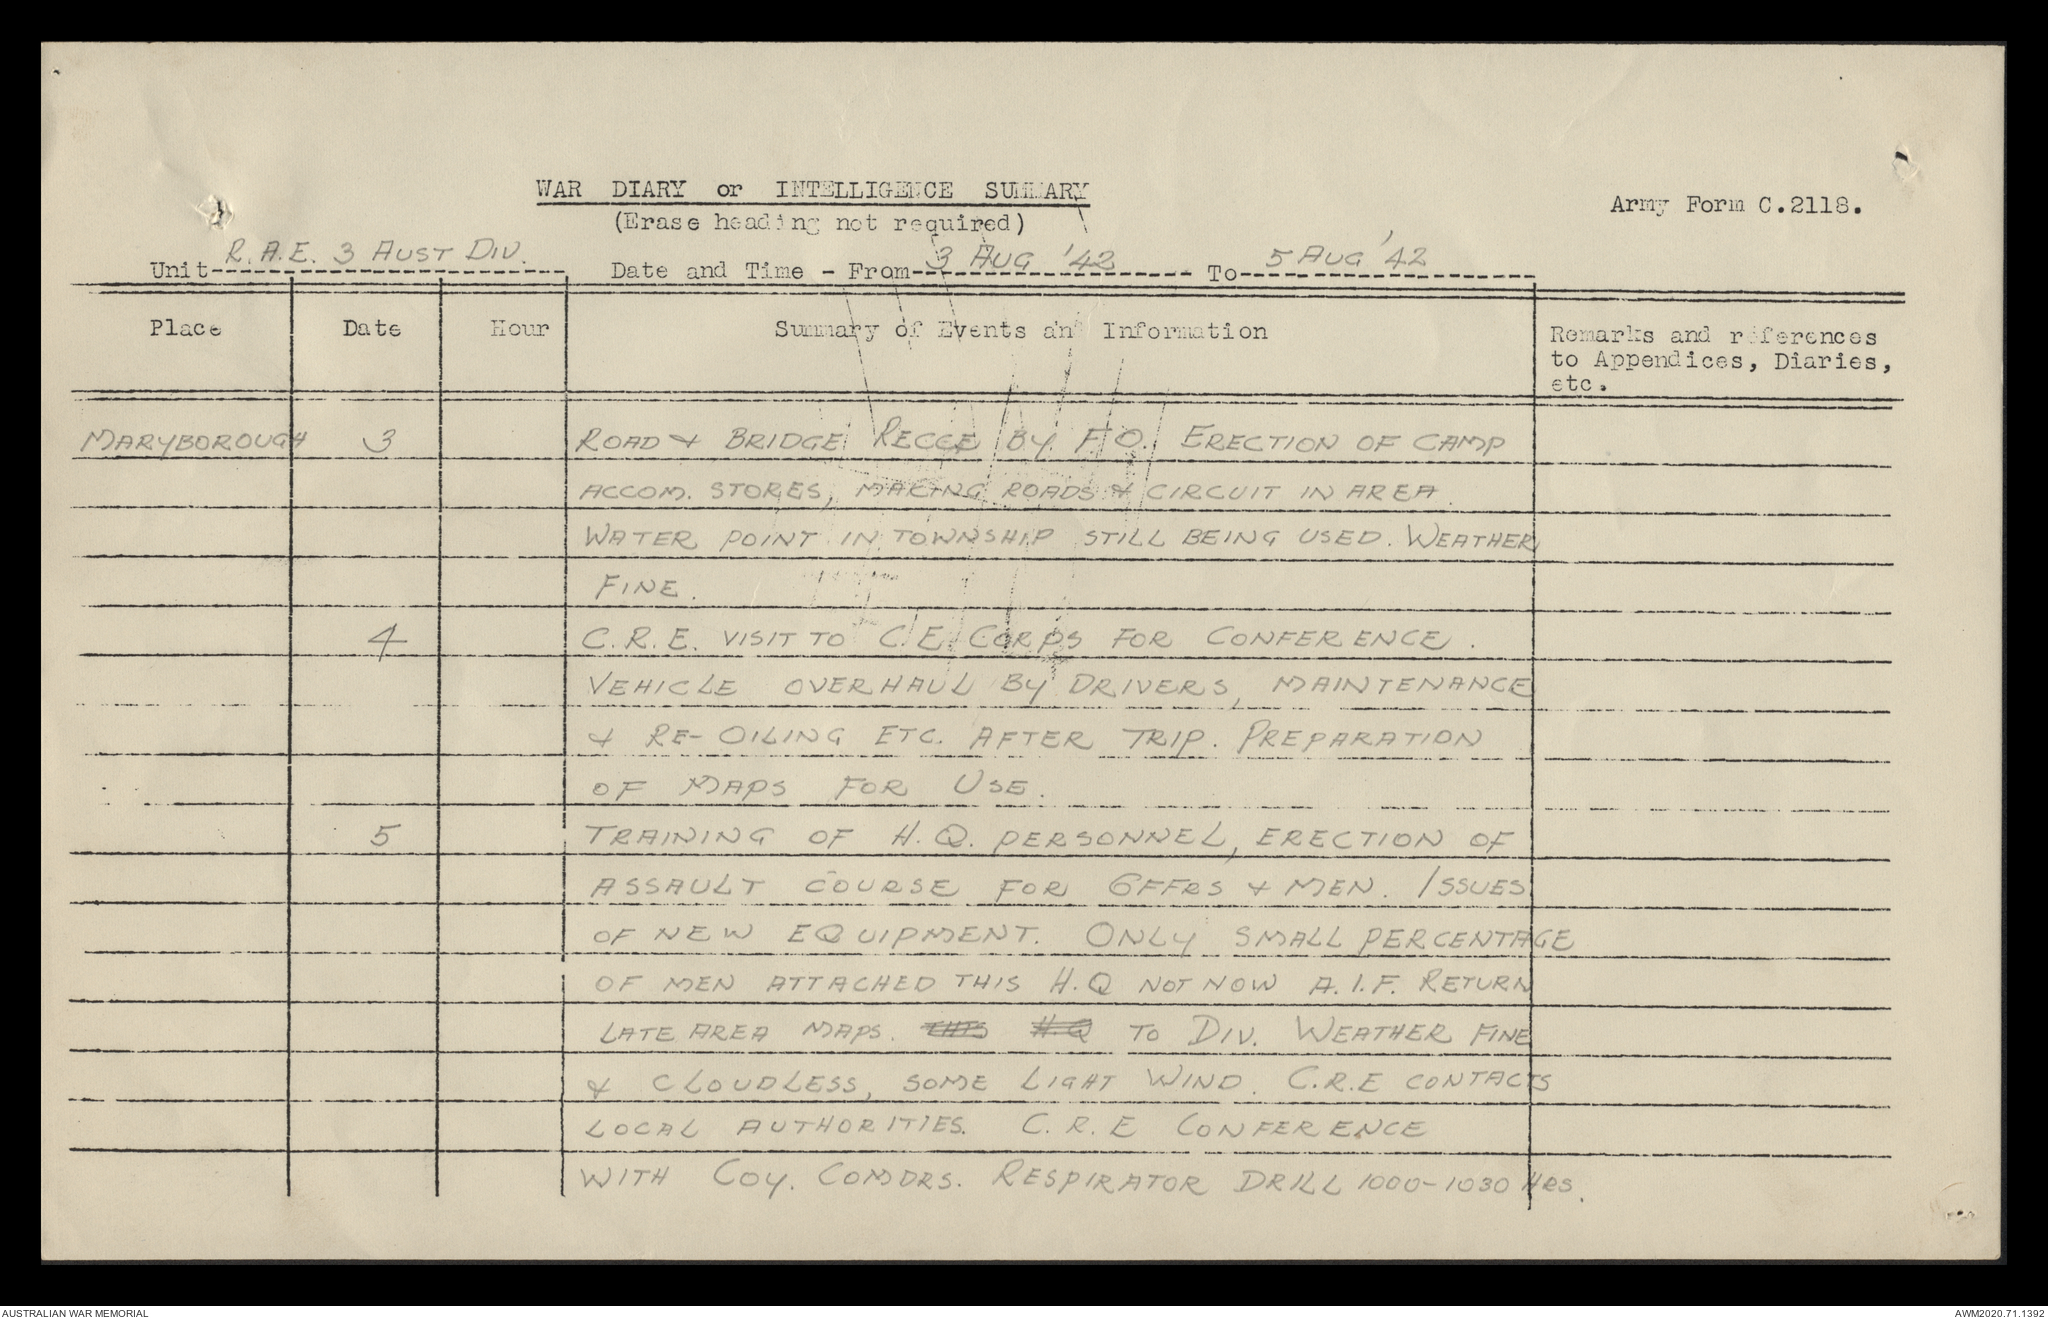 WAR DIARY or INTELLIGENCE SUMMARY
(Erase heading not required)
Army Form C.2118.
Unit R.A.E. 3 AUST DIV.
Date and Time - From 3 AUG '42 To 5 AUG '42
Place Date Hour Summary of Events and Information Remarks and references
to Appendices, Diaries,
etc.
MARYBOROUGH 3 ROAD & BRIDGE RECCE BY F.O. ERECTION OF CAMP
ACCOM. STORES, MAKING ROADS & CIRCUIT IN AREA.
WATER POINT IN TOWNSHIP STILL BEING USED. WEATHER
FINE.
4 C.R.E. VISIT TO C.E. CORPS FOR CONFERENCE.
VEHICLE OVERHAUL BY DRIVERS, MAINTENANCE
& RE-OILING ETC. AFTER TRIP. PREPARATION
OF MAPS FOR USE.
5 TRAINING OF H.Q. PERSONNEL, ERECTION OF
ASSAULT COURSE FOR OFFRS & MEN. ISSUES
OF NEW EQUIPMENT. ONLY SMALL PERCENTAGE
OF MEN ATTACHED THIS H.Q NOT NOW A.I.F. RETURN
LATE AREA MAPS. THIS H.Q TO DIV. WEATHER FINE
& CLOUDLESS, SOME LIGHT WIND. C.R.E CONTACTS
LOCAL AUTHORITIES. C.R.E CONFERENCE
WITH COY. COMDRS. RESPIRATOR DRILL 1000-1030 HRS.
AUSTRALIAN WAR MEMORIAL AWM2020.71.1392